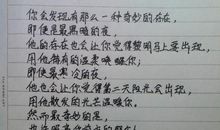 你会发现有那么一种奇妙的存在，
即使是最黑暗的夜，
他的存在也会让你觉得黎明马上要出现，
用他特有的温柔唤醒你；
即使最寒冷的夜，
他也会让你觉得第二天阳光会出现，
用他散发的光芒温暖你。
然而最奇妙的是，